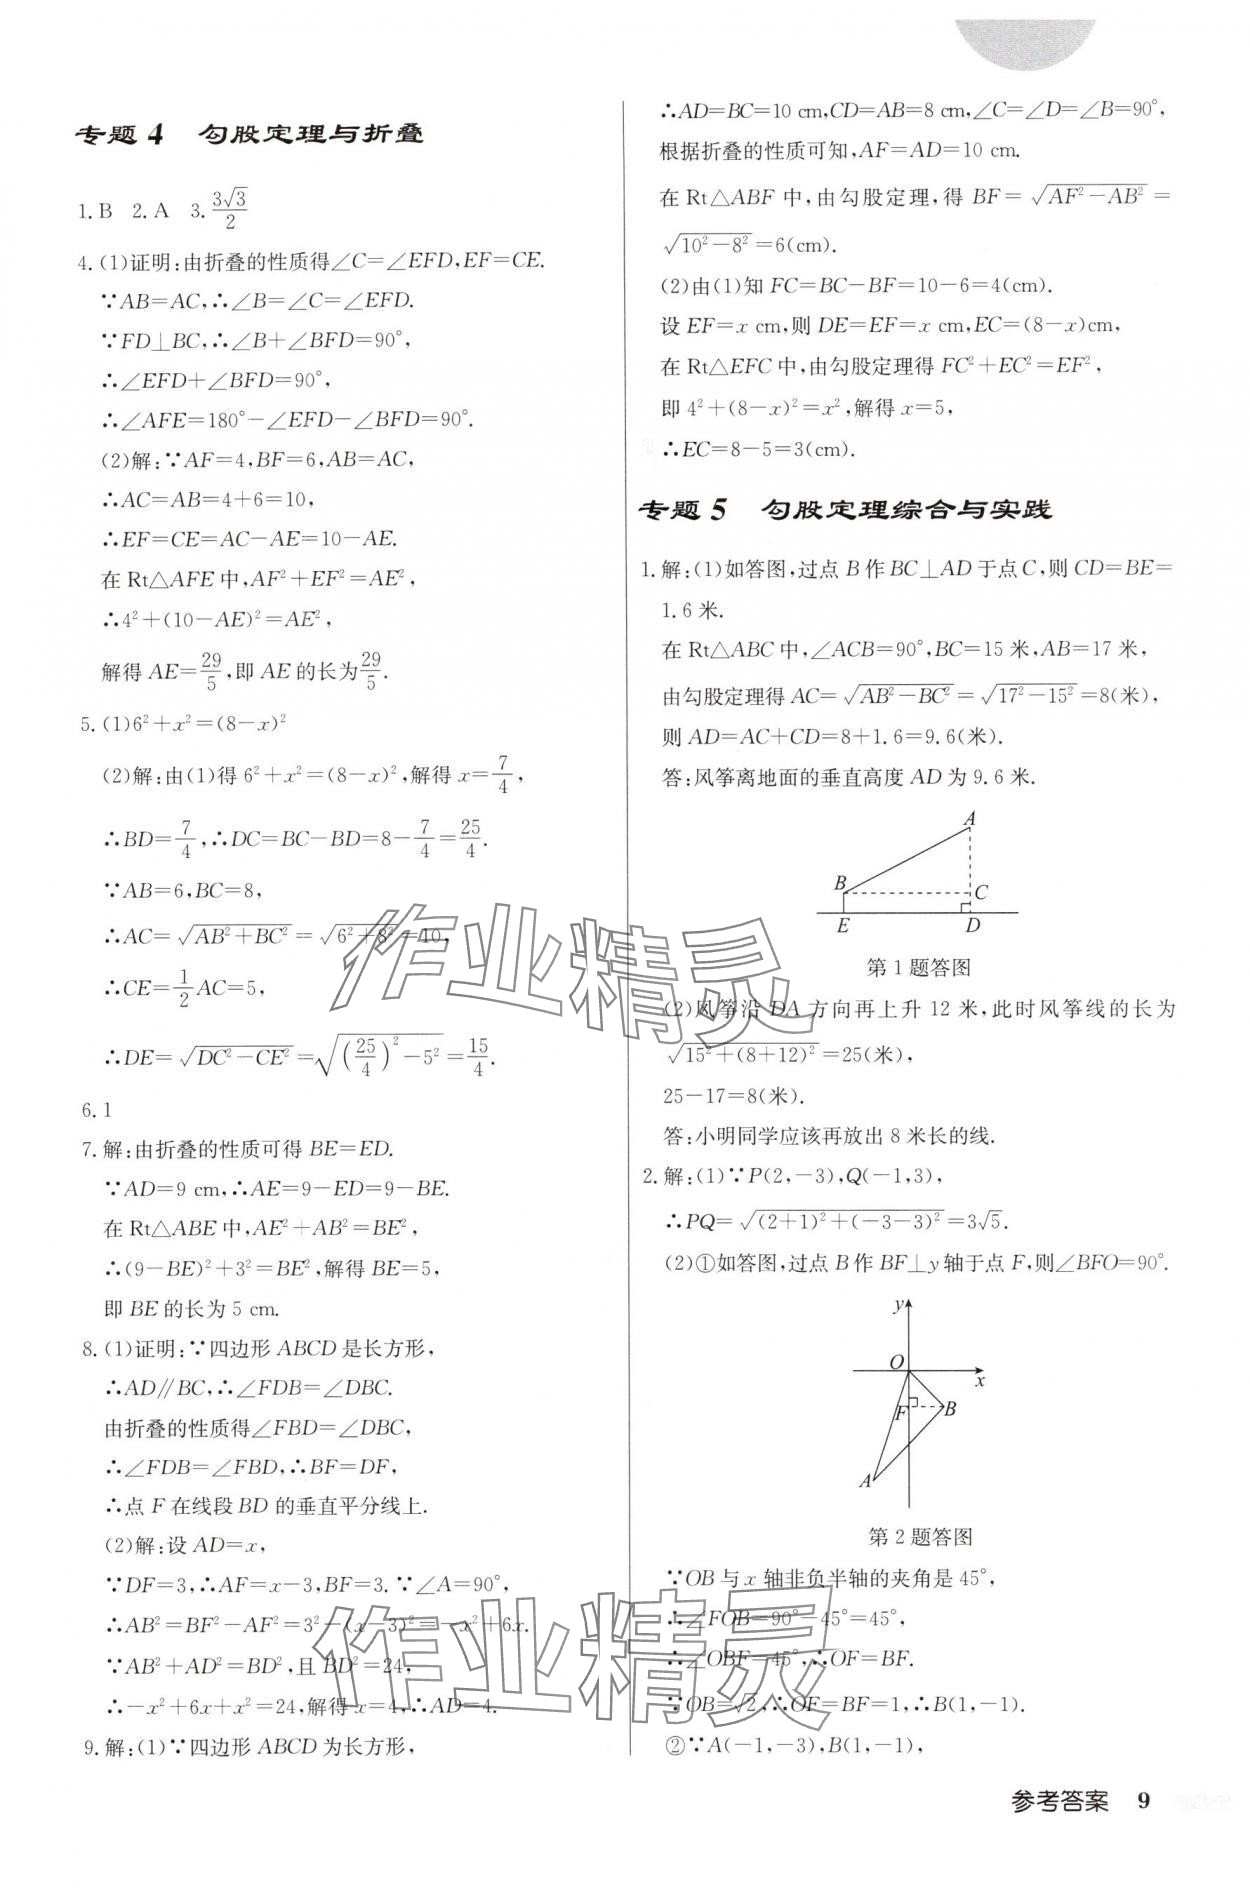 专题 4 勾股定理与折叠
1.B 2.A 3.$\frac{3\sqrt{3}}{2}$
4.(1)证明:由折叠的性质得∠C=∠EFD,EF=CE.
∵AB=AC,∴∠B=∠C=∠EFD.
∵FD⊥BC,∴∠B+∠BFD=90°,
∴∠EFD+∠BFD=90°,
∴∠AFE=180°-∠EFD-∠BFD=90°.
(2)解:∵AF=4,BF=6,AB=AC,
∴AC=AB=4+6=10,
∴EF=CE=AC-AE=10-AE.
在 Rt△AFE 中,AF²+EF²=AE²,
∴4²+(10-AE)²=AE²,
解得 AE=$\frac{29}{5}$,即 AE 的长为$\frac{29}{5}$.
5.(1)6²+x²=(8-x)²
(2)解:由(1)得 6²+x²=(8-x)²,解得 x=$\frac{7}{4}$,
∴BD=$\frac{7}{4}$,∴DC=BC-BD=8-$\frac{7}{4}$=$\frac{25}{4}$.
∵AB=6,BC=8,
∴AC=$\sqrt{AB²+BC²}$=$\sqrt{6²+8²}$=10,
∴CE=$\frac{1}{2}$AC=5,
∴DE=$\sqrt{DC²-CE²}$=$\sqrt{(\frac{25}{4})²-5²}$=$\frac{15}{4}$.
6.1
7.解:由折叠的性质可得 BE=ED.
∵AD=9 cm,∴AE=9-ED=9-BE.
在 Rt△ABE 中,AE²+AB²=BE²,
∴(9-BE)²+3²=BE²,解得 BE=5,
即 BE 的长为 5 cm.
8.(1)证明:∵四边形 ABCD 是长方形,
∴AD∥BC,∴∠FDB=∠DBC.
由折叠的性质得∠FBD=∠DBC,
∴∠FDB=∠FBD,∴BF=DF,
∴点 F 在线段 BD 的垂直平分线上.
(2)解:设 AD=x,
∵DF=3,∴AF=x-3,BF=3.∵∠A=90°,
∴AB²=BF²-AF²=3²-(x-3)²=-x²+6x.
∵AB²+AD²=BD²,且 BD²=24,
∴-x²+6x+x²=24,解得 x=4,∴AD=4.
9.解:(1)∵四边形 ABCD 为长方形,
∴AD=BC=10 cm,CD=AB=8 cm,∠C=∠D=∠B=90°,
根据折叠的性质可知,AF=AD=10 cm.
在 Rt△ABF 中,由勾股定理,得 BF=$\sqrt{AF²-AB²}$=
$\sqrt{10²-8²}$=6(cm).
(2)由(1)知 FC=BC-BF=10-6=4(cm).
设 EF=x cm,则 DE=EF=x cm,EC=(8-x)cm,
在 Rt△EFC 中,由勾股定理得 FC²+EC²=EF²,
即 4²+(8-x)²=x²,解得 x=5,
∴EC=8-5=3(cm).
专题 5 勾股定理综合与实践
1.解:(1)如答图,过点 B 作 BC⊥AD 于点 C,则 CD=BE=
1.6 米.
在 Rt△ABC 中,∠ACB=90°,BC=15 米,AB=17 米,
由勾股定理得 AC=$\sqrt{AB²-BC²}$=$\sqrt{17²-15²}$=8(米),
则 AD=AC+CD=8+1.6=9.6(米).
答:风筝离地面的垂直高度 AD 为 9.6 米.
A
B C
E D
第 1 题答图
(2)风筝沿 DA 方向再上升 12 米,此时风筝线的长为
$\sqrt{15²+(8+12)²}$=25(米),
25-17=8(米).
答:小明同学应该再放出 8 米长的线.
2.解:(1)∵P(2,-3),Q(-1,3),
∴PQ=$\sqrt{(2+1)²+(-3-3)²}$=3$\sqrt{5}$.
(2)①如答图,过点 B 作 BF⊥y 轴于点 F,则∠BFO=90°.
y
O
x
F B
A
第 2 题答图
∵OB 与 x 轴非负半轴的夹角是 45°,
∴∠FOB=90°-45°=45°,
∴∠OBF=45°,∴OF=BF.
∵OB=$\sqrt{2}$,∴OF=BF=1,∴B(1,-1).
②∵A(-1,-3),B(1,-1),
参考答案 9
作业精灵
作业精灵